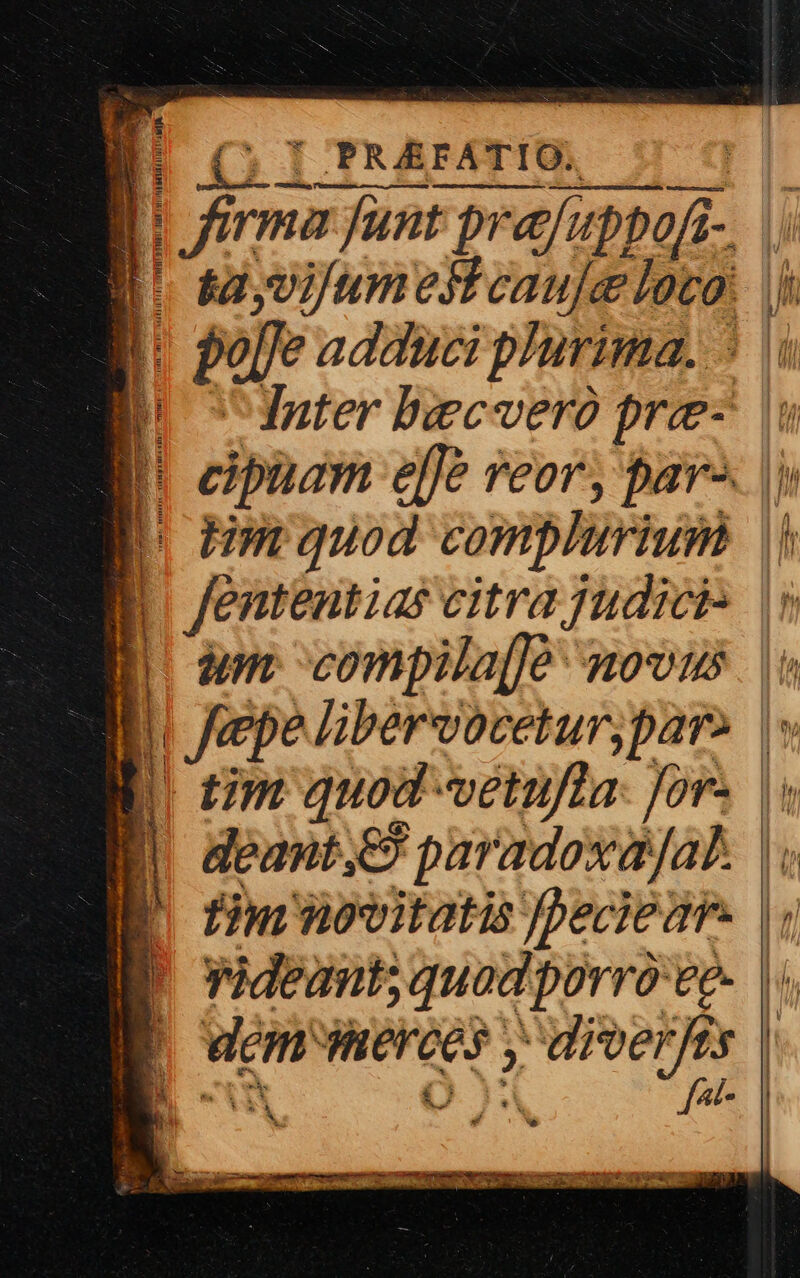 PRÆFATIO.
firma ſunt præſuppoſi-
ta, viſum eſt cauſæ loco
poſſe adduci plurima.
Inter hæc verò præ-
cipuam eſſe reor, par-
tim quod complurium
ſententias citra judici-
um compilaſſe novus
ſæpe liber vocetur, par-
tim quod vetuſta ſor-
deant, & paradoxa ſal-
tim novitatis ſpecie ar-
rideant; quod porrò ee-
dem merces, diverſis
ſal-